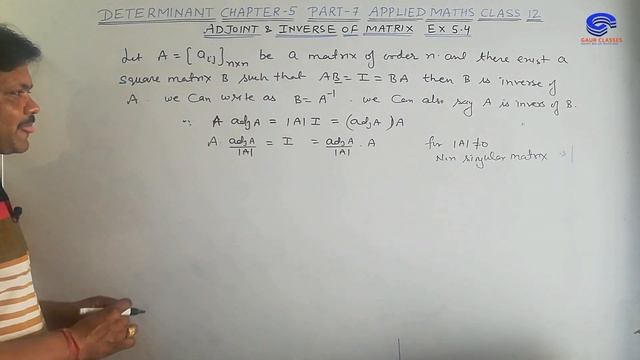 DETERMINANT CHAPTER-5 PART-7 APPLIED MATHS CLASS 12
ADJOINT & INVERSE OF MATRIX EX 5.4
GAUR CLASSES
Let A = [aij]n×n be a matrix of order n and there exist a
square matrix B such that AB = I = BA then B is inverse of
A. we can write as B = A⁻¹. we can also say A is invers of B.
∵ A adjA = |A| I = (adjA) A
A. adjA/|A| = I = adjA/|A| . A for |A| ≠ 0
Non singular matrix